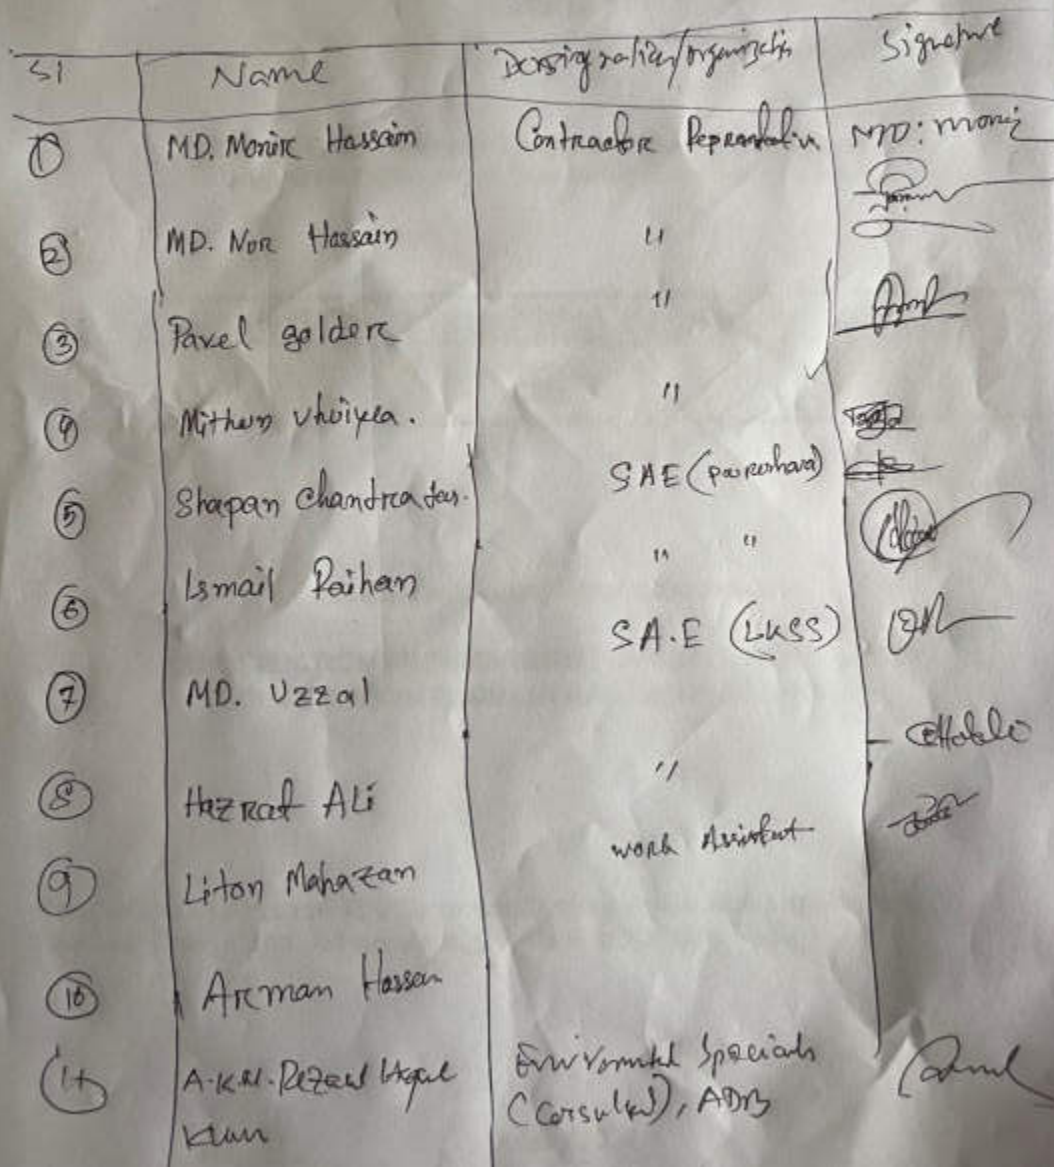 Sl Name Designation/organization Signature
1 MD. Monir Hossain Contractor Representative MD: Monir
2 MD. Nor Hossain "
3 Pavel golder "
4 Mithun vhuiyea. "
5 Shapan Chandra das. SAE (pourashava)
6 Ismail Raihan " "
7 MD. Uzzal S.A.E (LKSS)
8 Hazrat ALi "
9 Liton Mahazan work Assistant
10 Arman Hossen
11 A.K.M. Rezaul Haque Environmental Specialis
Khan (Consultant), ADB